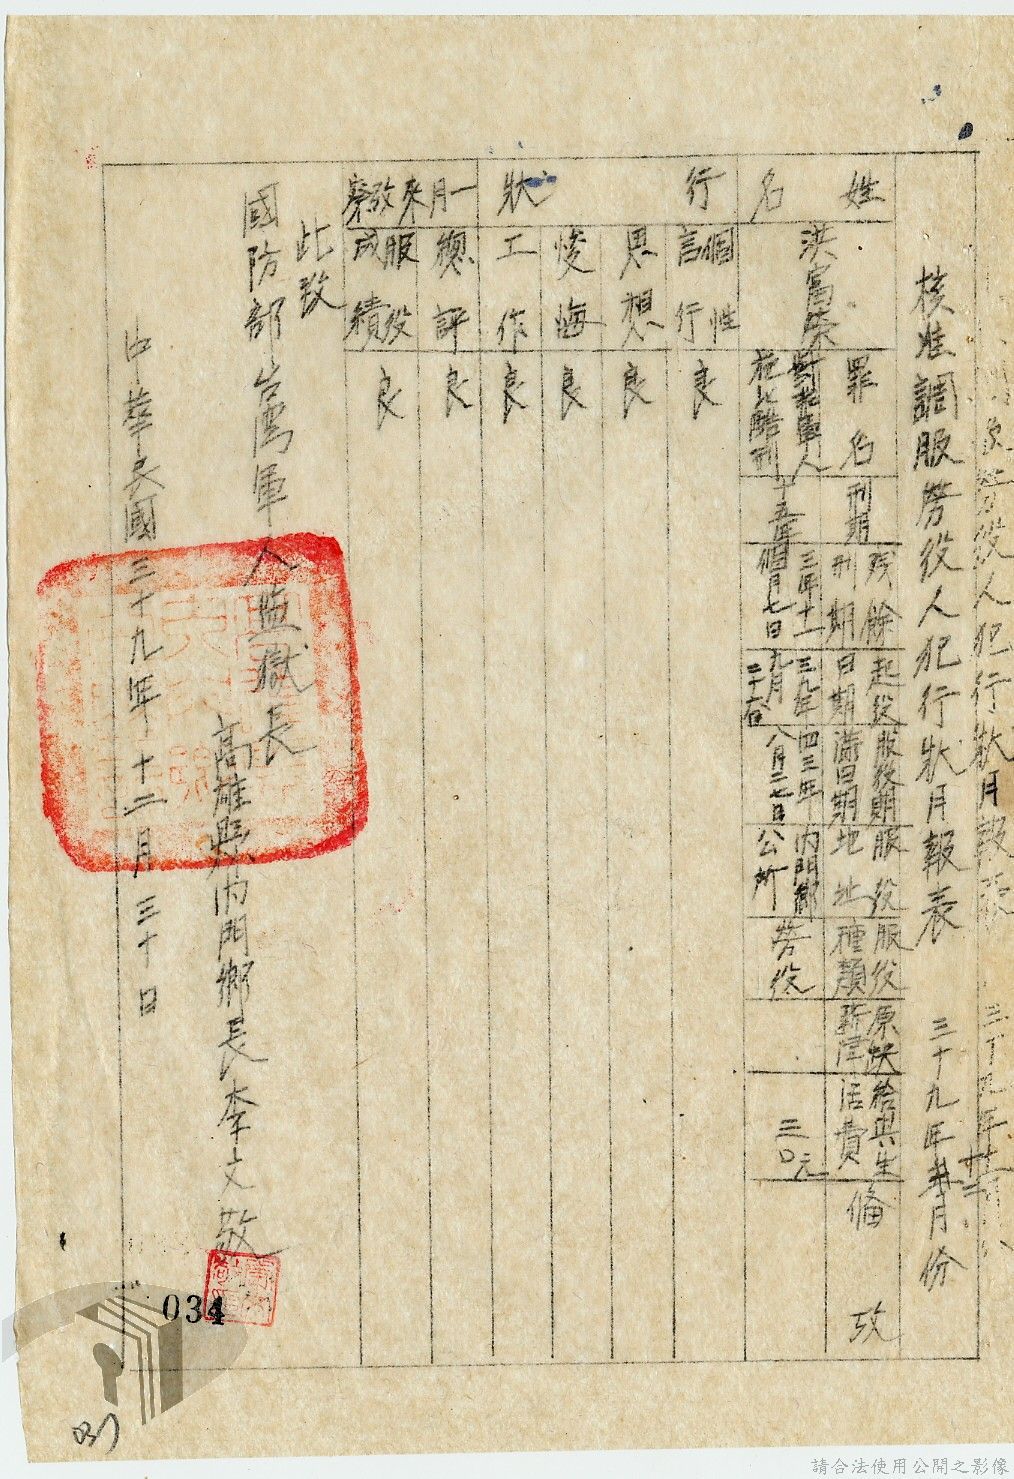 核准調服勞役人犯行狀月報表 三十九年 月份
姓名
洪富榮
罪名
對於軍人施以酷刑
刑期
十五年
殘餘刑期
三年十一個月七日
起役日期
三九年九月二十六日
服役期滿日期
四三年八月二七日
服役地址
內門鄉公所
服役種類
勞役
原缺薪津
給與生活費
三〇元
備攷
行狀
個性言行
良
思想
良
悛悔
良
工作
良
一月來攷察
總評
良
服役成績
良
此致
國防部 軍人監獄長
高雄縣內門鄉長李文敬
中華民國三十九年十二月三十日
034
請合法使用公開之影像